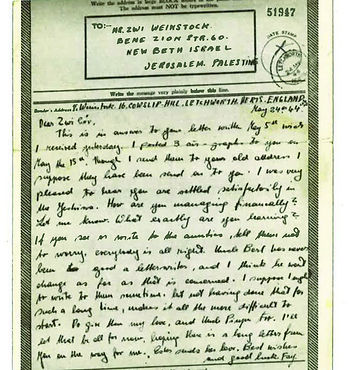 Write the address in large BLOCK letters
The address must NOT be typewritten.
51947
TO:- MR. ZWI WEINSTOCK.
BENE ZION STR. 60.
NEW BETH ISRAEL
JERUSALEM, PALESTINE
Write the message very plainly below this line.
16, COWSLIP HILL, LETCHWORTH, HERTS. ENGLAND.
May 24th 44
Dear Zwi
This is in answer to your letter written May 5th which
I received yesterday. I posted 3 air-graphs to you on
May the 15th, though I send them to your old address I
suppose they have been send on to you. I was very
pleased to hear you are settled satisfactorily in
the Yeshiva. How are you managing financially?
Let me know. What exactly are you learning?
If you see or write to the aunties, tell them not
to worry, everybody is all right. Uncle Bert has never
been a good letterwriter, and I think he won't
change as far as that is concerned. I suppose I ought
to write to them sometime, but not having done that for
such a long time, makes it all the more difficult to
start. Do give them my love, and Uncle too. I'll
let that be all for now, hoping there is a long letter from
you on the way for me. sends her love. Best wishes
and good luck Fay.